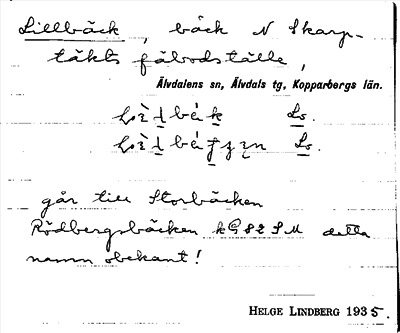 Lillbäck, bäck N Skarp-
täkts fäbodställe,
Älvdalens sn, Älvdals tg, Kopparbergs län.
Ls.
Ls.
går till Storbäcken
Rödbergsbäcken kG 82 SM detta
namn obekant!
HELGE LINDBERG 1935.